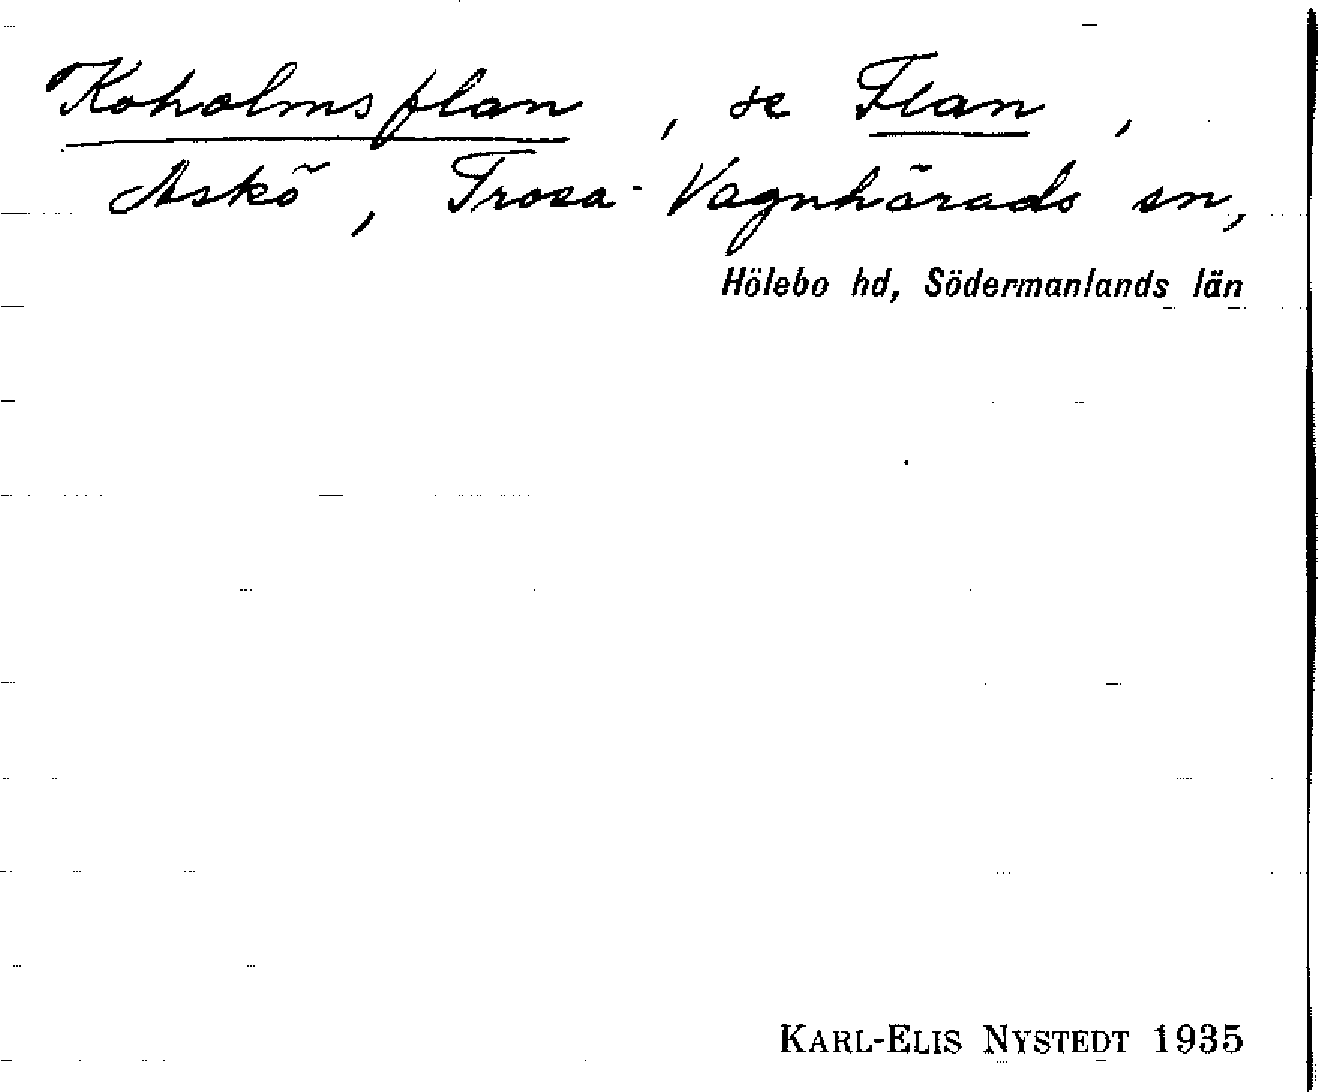 Koholmsflan, se Flan,
Askö, Trosa-Vagnhärads sn,
Hölebo hd, Södermanlands län
KARL-ELIS NYSTEDT 1935